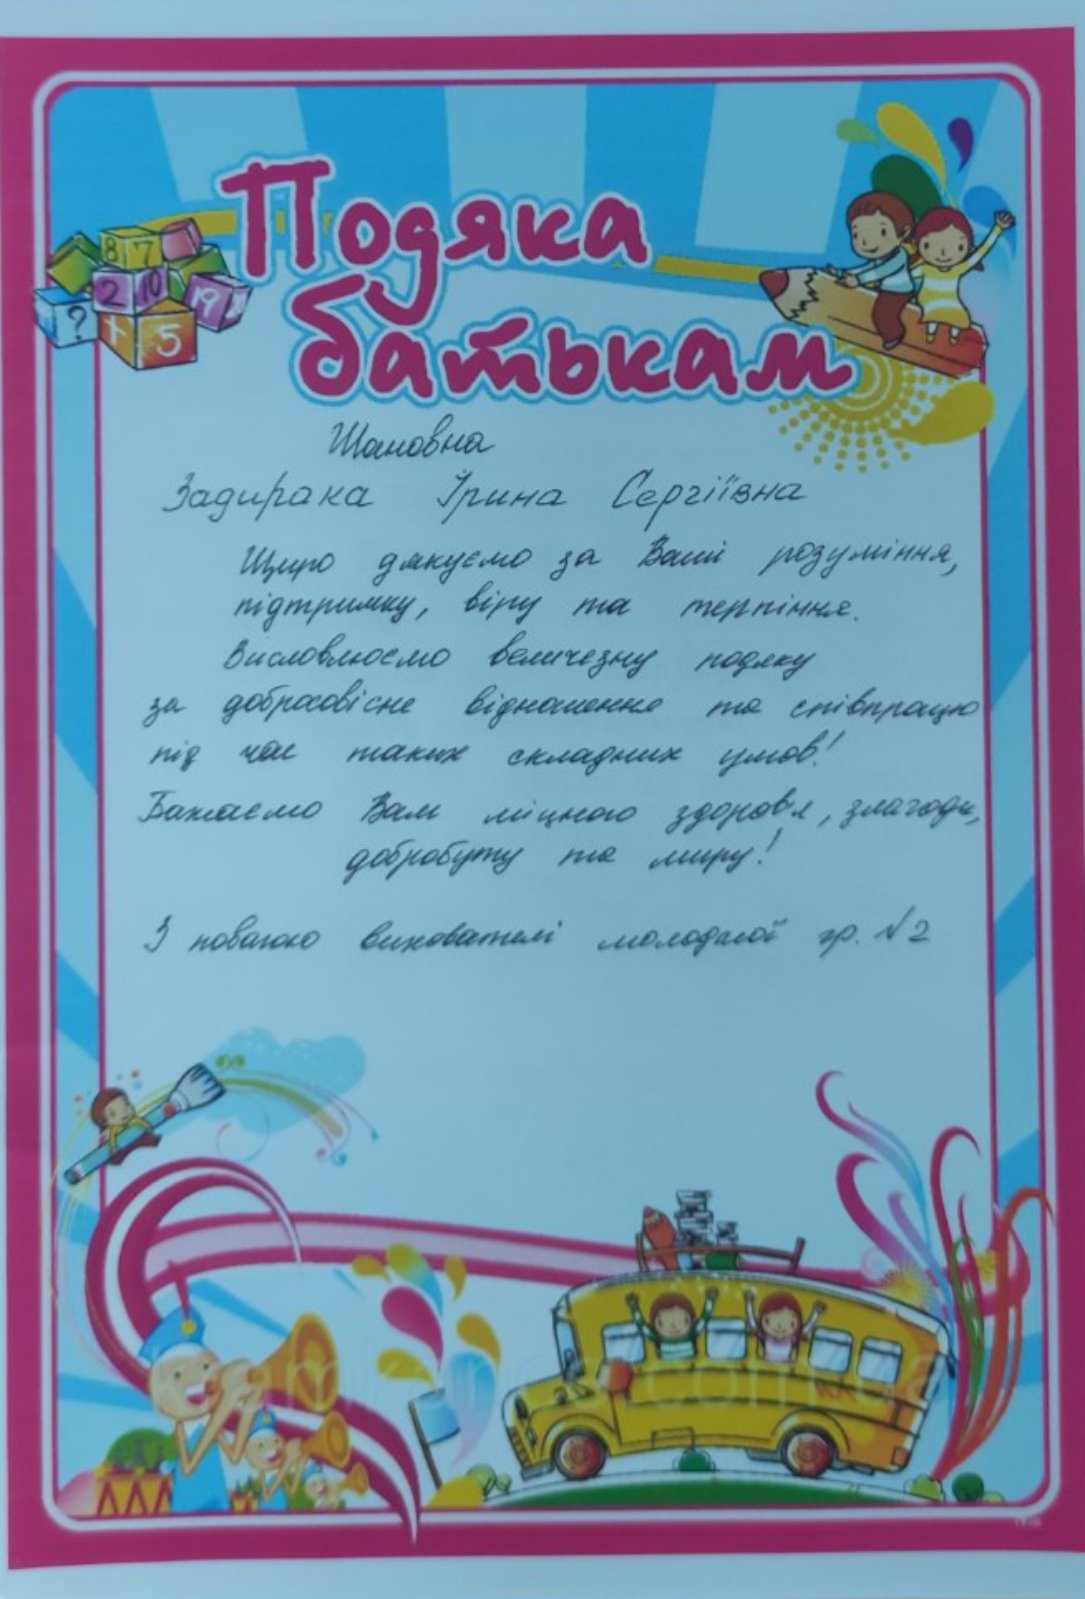 Подяка
батькам
Шановна
Задирака Ірина Сергіївна
Щиро дякуємо за Ваші розуміння,
підтримку, віру та терпіння.
Висловлюємо величезну подяку
за добросовісне відношення та співпрацю
під час таких складних умов!
Бажаємо Вам міцного здоров'я, злагоди,
добробуту та миру!
З повагою вихователі молодшої гр. №2
8 7
2 10 19
? + 5